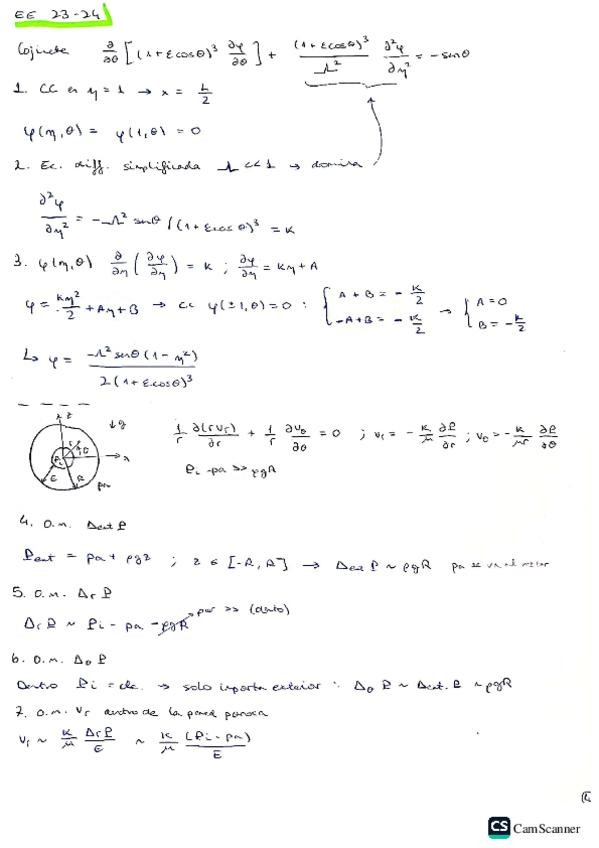 EE 23-24
Cojinete ∂/∂θ [(1+εcosθ)³ ∂φ/∂θ] + (1+εcosθ)³/Λ² ∂²φ/∂η² = -sinθ
1. CC en η = 1 → x = L/2
φ(η,θ) = φ(1,θ) = 0
2. Ec. diff. simplificada Λ<<1 → domina
∂²φ/∂η² = -Λ² sinθ /(1+εcosθ)³ = K
3. φ(η,θ) ∂/∂η (∂φ/∂η) = K ; ∂φ/∂η = Kη + A
φ = Kη²/2 + Aη + B → CC φ(±1,θ)=0 : { A+B = -K/2 -A+B = -K/2 → { A=0 B=-K/2
↳ φ = -Λ² sinθ (1-η²) / 2(1+εcosθ)³
z ↓g
1/r ∂(r vr)/∂r + 1/r ∂vθ/∂θ = 0 ; vr = -K/μ ∂P/∂r ; vθ = -K/μr ∂P/∂θ
Pi r θ x
E R pa
Pi - pa >> ρgR
4. O.M. Δext P
Pext = pa + ρgz ; z ∈ [-R, R] → Δext P ~ ρgR pa se va al restar
5. O.M. Δr P
Δr P ~ Pi - pa - ρgR por >> (dato)
6. O.M. Δθ P
Dentro Pi = cte. → solo importa exterior ∴ Δθ P ~ Δext. P ~ ρgR
7. O.M. vr dentro de la pared porosa
vr ~ K/μ ΔrP/E ~ K/μ (Pi - pa)/E
CS CamScanner